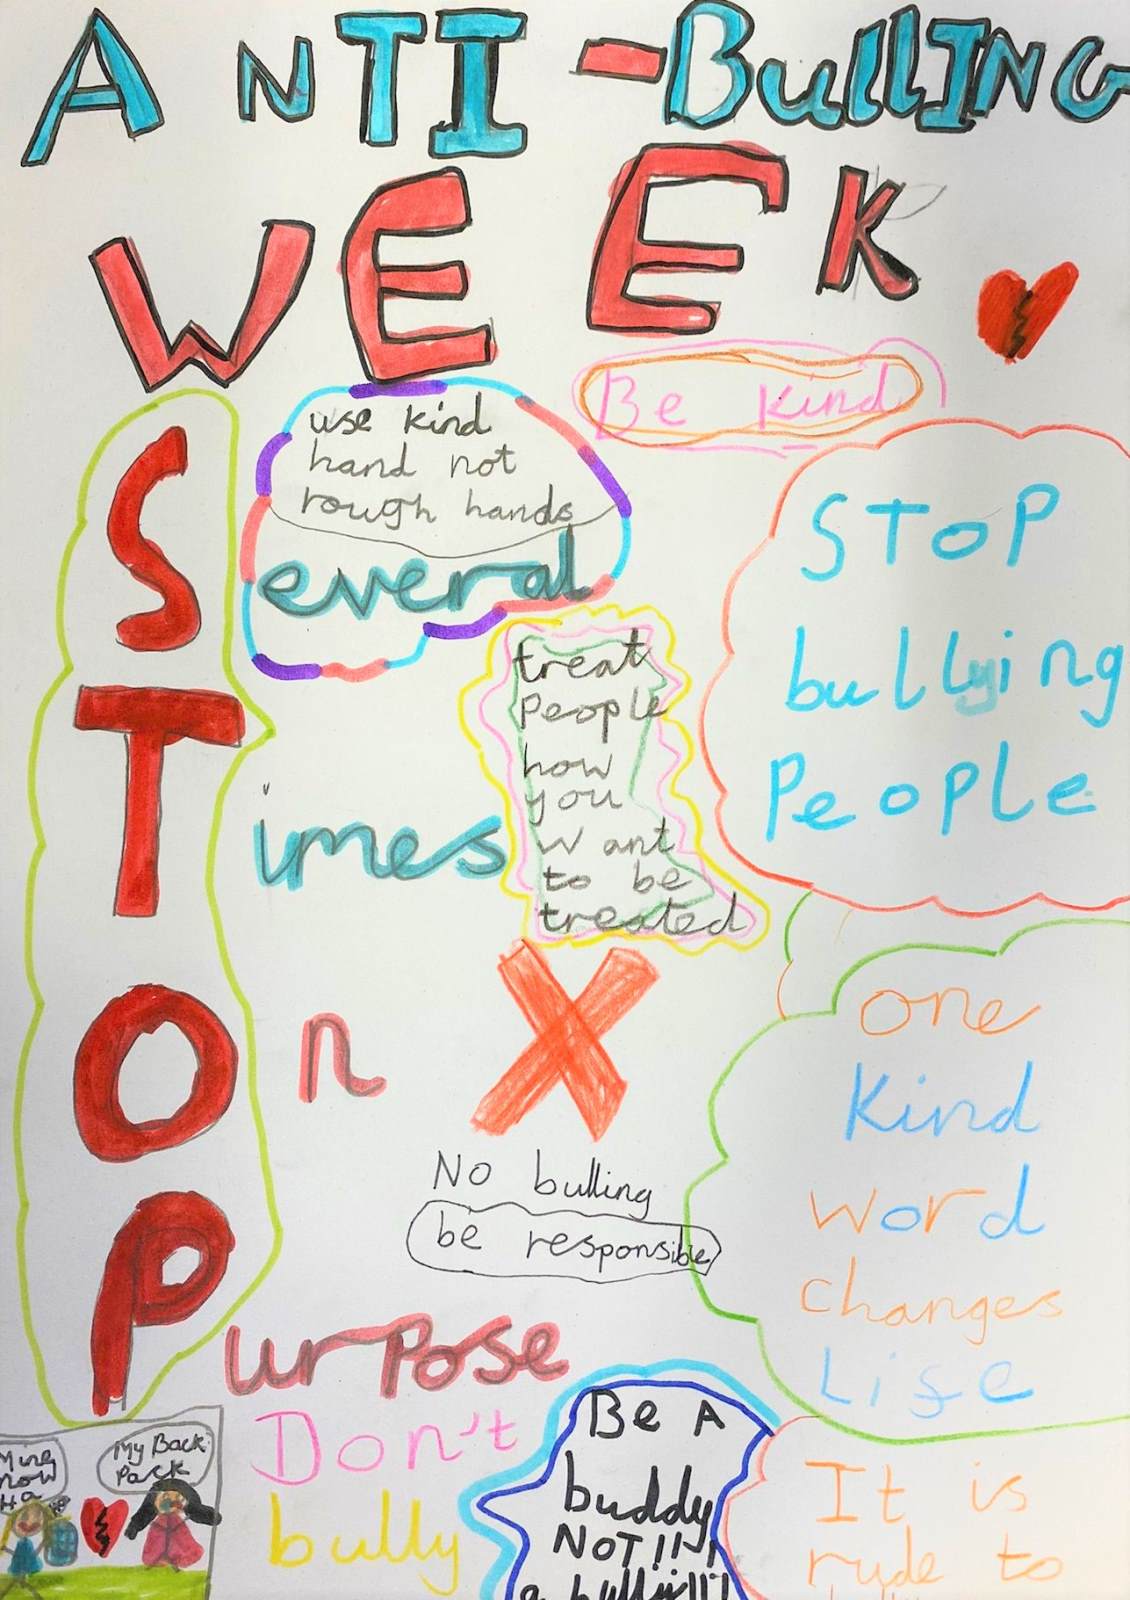 ANTI-BullING
WEEK
Be Kind
use kind
hand not
rough hands
Several
STOP
bullying
People
treat
People
how
you
want
to be
treated
Times
one
Kind
word
changes
Life
On
X
No bulling
be responsible
Purpose
Don't
bully
Be A
buddy
NOT!!!
a
It is
rude to
Mine
now
Ha
My Back
Pack